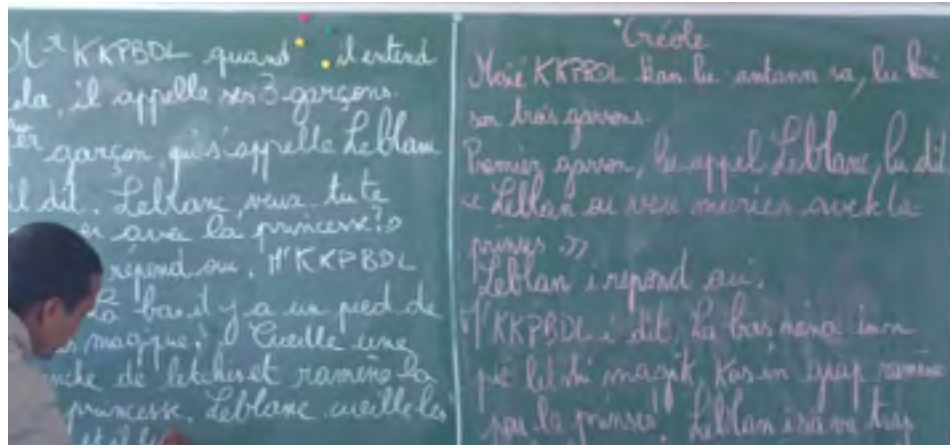 Mr KKPBDL quand il entend
ela, il appelle ses 3 garçons.
1er garçon, qui s'appelle Leblanc
il dit. Leblanc, veux tu te
er avec la princesse?»
répond oui. Mr KKPBDL
La bas il y a un pied de
magique. Cueille une
nche de letchis et ramène la
princesse. Leblanc cueille les
et il
Créole
Mosié KKPBDL kan lu antann sa, lu kri
son trois garsons.
Premier garson, lu appel Leblanc, lu dit
« Leblan ou veu mariés avek la
prinses »
Leblan i répond oui.
Mr KKPBDL i dit, La bas nena inn
pié letchi magik, Kas in grap ramène
pou la prinsès. Leblan i sava trap